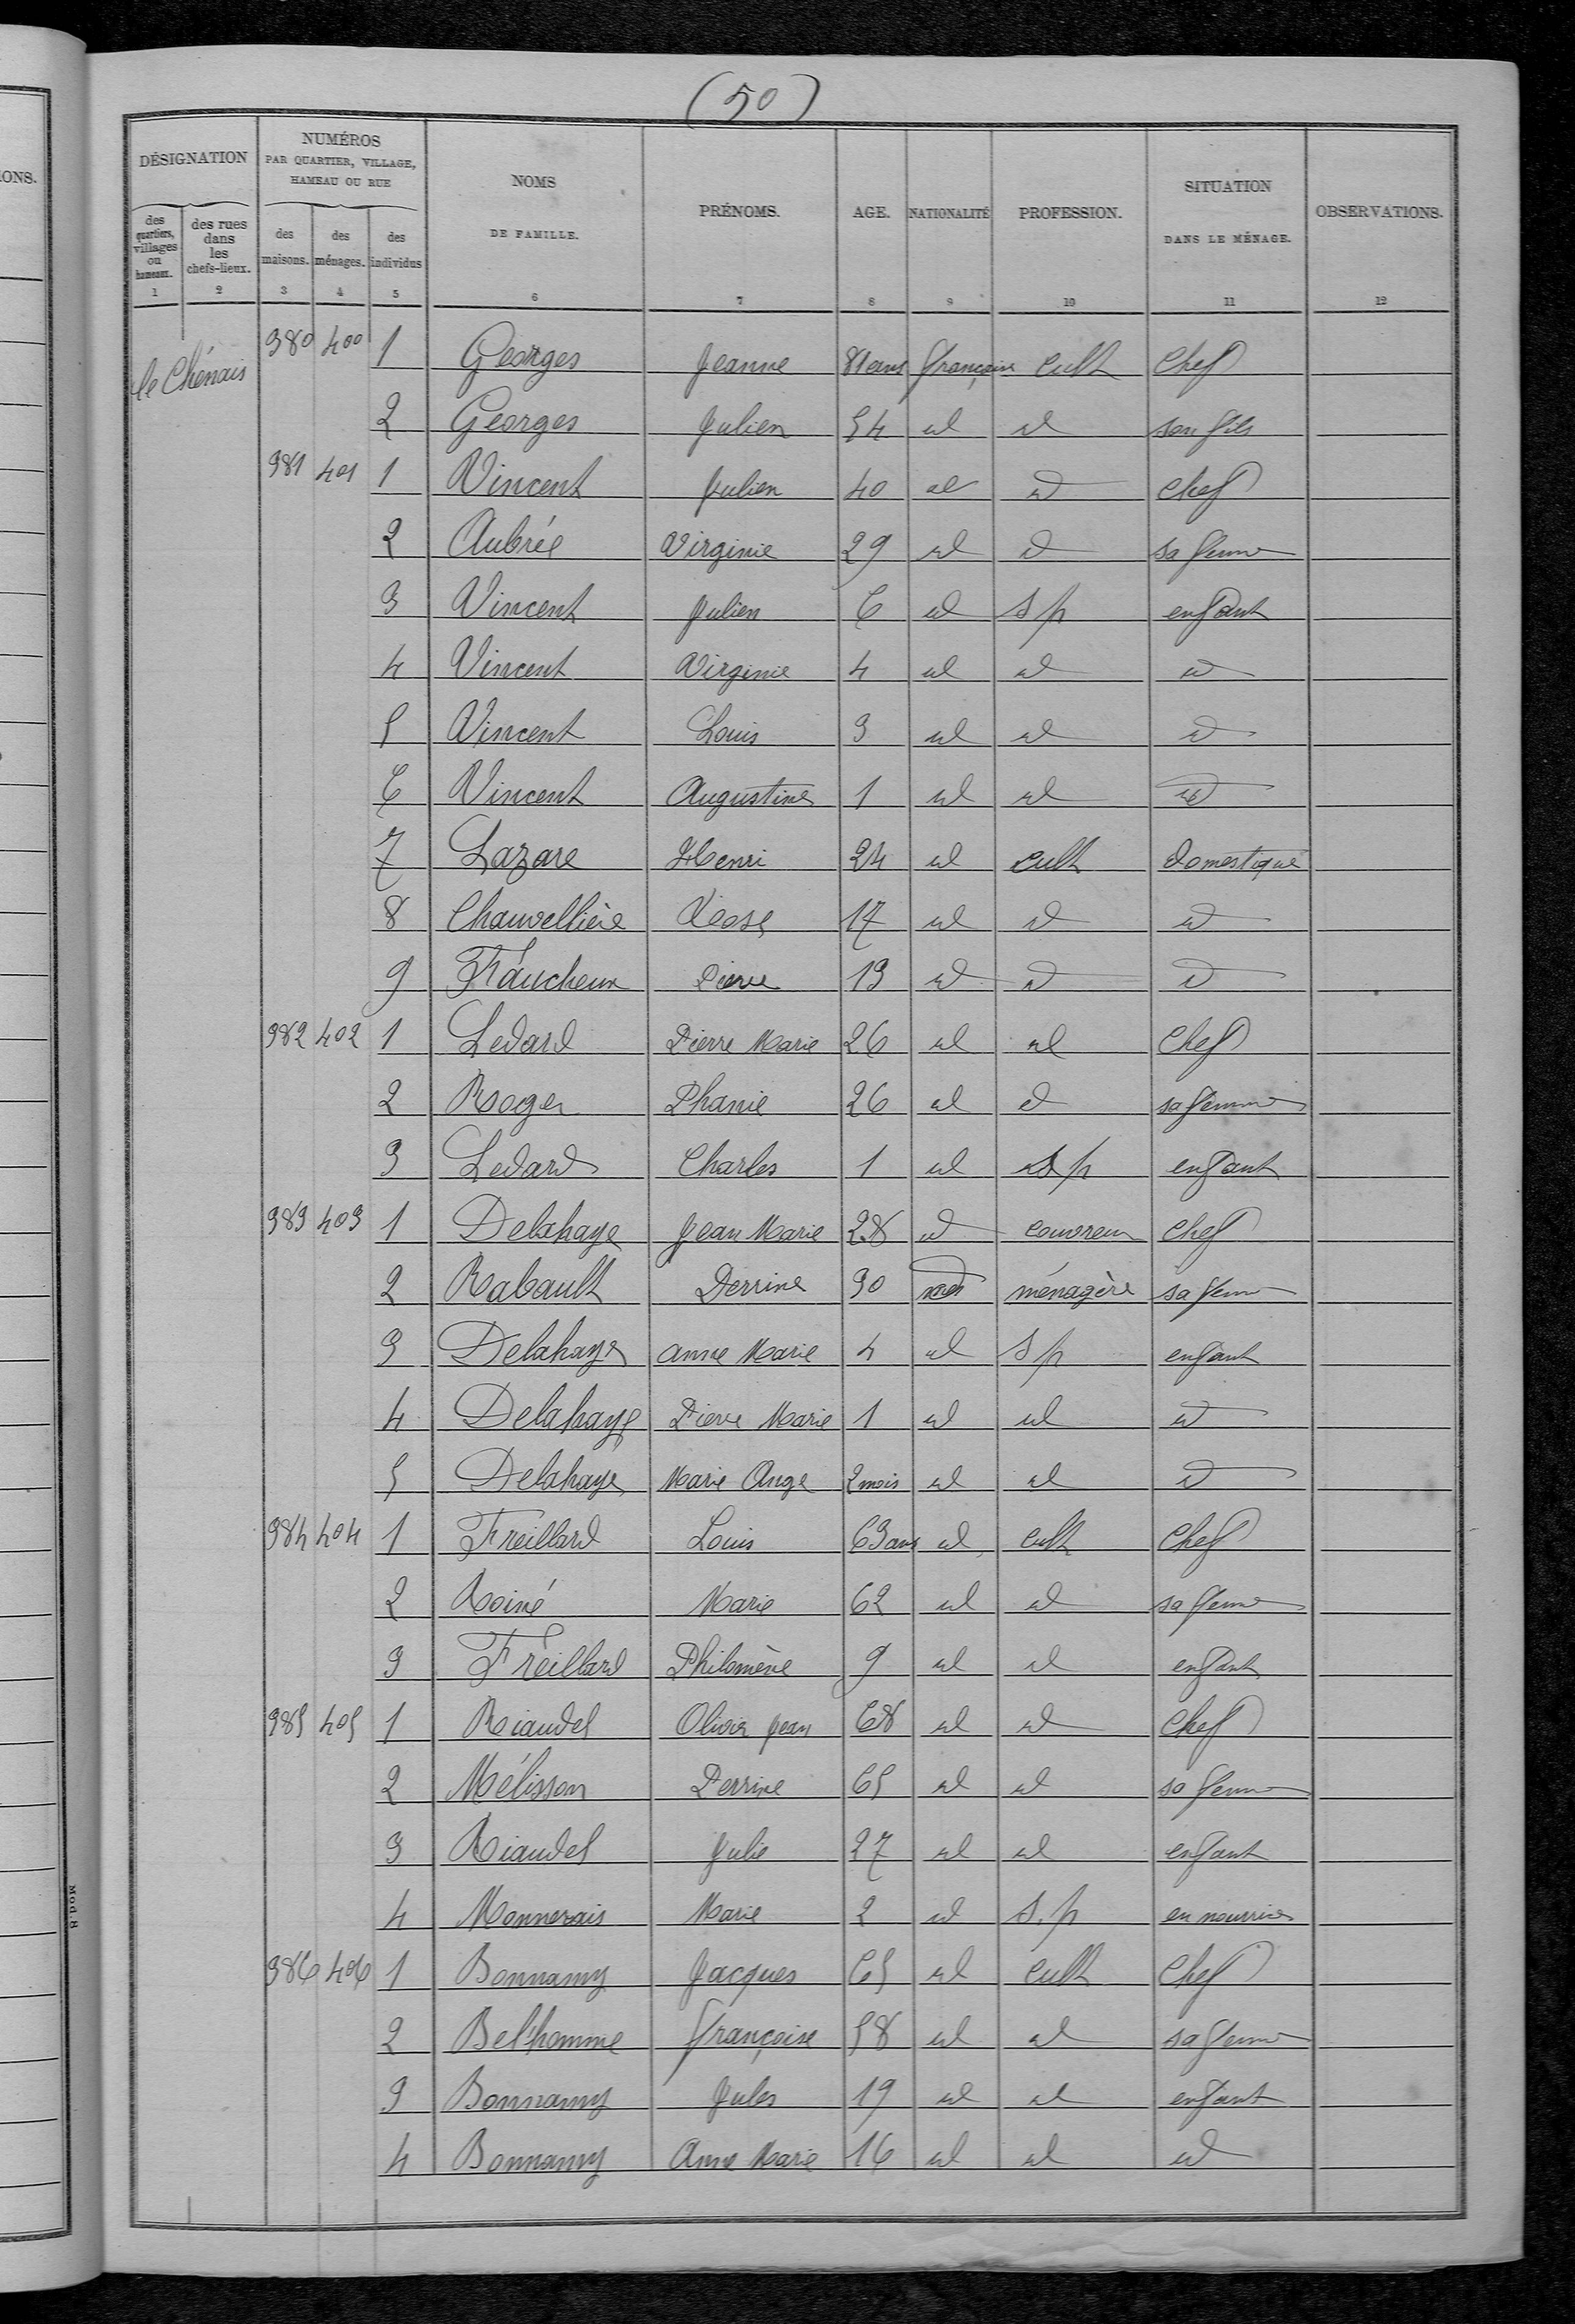 (50)
IONS.
DÉSIGNATION NUMÉROS PAR QUARTIER, VILLAGE, HAMEAU OU RUE NOMS DE FAMILLE. PRÉNOMS. AGE. NATIONALITÉ PROFESSION. SITUATION DANS LE MÉNAGE. OBSERVATIONS.
des quartiers, villages ou hameaux. des rues dans les chefs-lieux. des maisons. des ménages. des individus
1 2 3 4 5 6 7 8 9 10 11 12
le Chénais 380 400 1 Georges Jeanne 81 ans française cult chef
2 Georges Julien 54 id id son fils
381 401 1 Vincent Julien 40 id id chef
2 Aubrée Virginie 29 id id sa femme
3 Vincent Julien 6 id s p enfant
4 Vincent Virginie 4 id id id
5 Vincent Louis 3 id id id
6 Vincent Augustine 1 id id id
7 Lazare Henri 24 id cult domestique
8 Chauvellière Rose 17 id id id
9 Faucheux Pierre 13 id id id
382 402 1 Ledard Pierre Marie 26 id id chef
2 Roger Phanie 26 id id sa femme
3 Ledard Charles 1 id s p enfant
383 403 1 Delahaye Jean Marie 28 id couvreur chef
2 Rabault Perrine 30 id ménagère sa femme
3 Delahaye Anne Marie 4 id s p enfant
4 Delahaye Pierre Marie 1 id id id
5 Delahaye Marie Ange 2 mois id id id
384 404 1 Freillard Louis 63 ans id cult chef
2 Roiné Marie 62 id id sa femme
3 Freillard Philomène 9 id id enfant
385 405 1 Riaudel Olivier Jean 68 id id chef
2 Mélisson Perrine 65 id id sa femme
3 Riaudel Julie 27 id id enfant
4 Monnerais Marie 2 id s. p en nourrice
386 406 1 Bonnamy Jacques 65 id cult chef
2 Bel'homme Françoise 58 id id sa femme
3 Bonnamy Jules 19 id id enfant
4 Bonnamy Anne Marie 16 id id id
Mod. 8